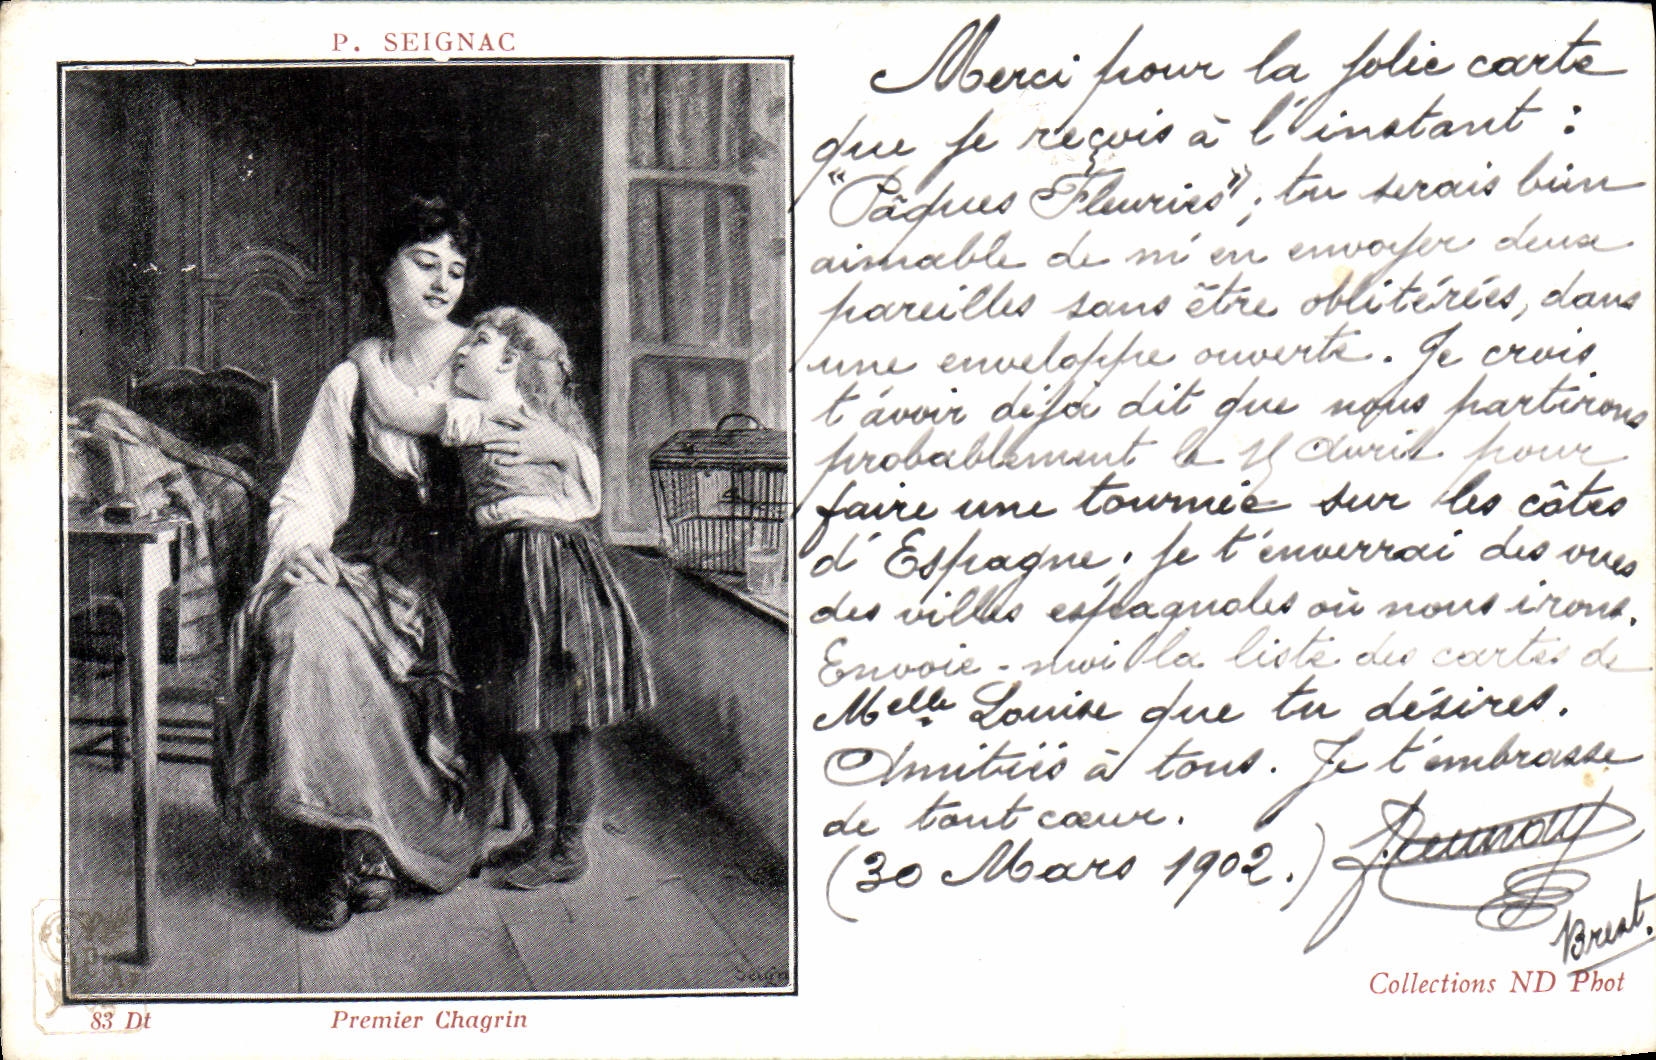 P. SEIGNAC
Merci pour la jolie carte
que je reçois à l'instant :
"Pâques Fleuries"; tu serais bien
aimable de m'en envoyer deux
pareilles sans être oblitérées, dans
une enveloppe ouverte. Je crois
t'avoir déjà dit que nous partirons
probablement le Avril pour
faire une tournée sur les côtes
d'Espagne; je t'enverrai des vues
des villes espagnoles où nous irons.
Envoie-moi la liste des cartes de
Melle Louise que tu désires.
Amitiés à tous. Je t'embrasse
de tout cœur.
(30 Mars 1902.)
Brest.
Collections ND Phot
83 Dt
Premier Chagrin